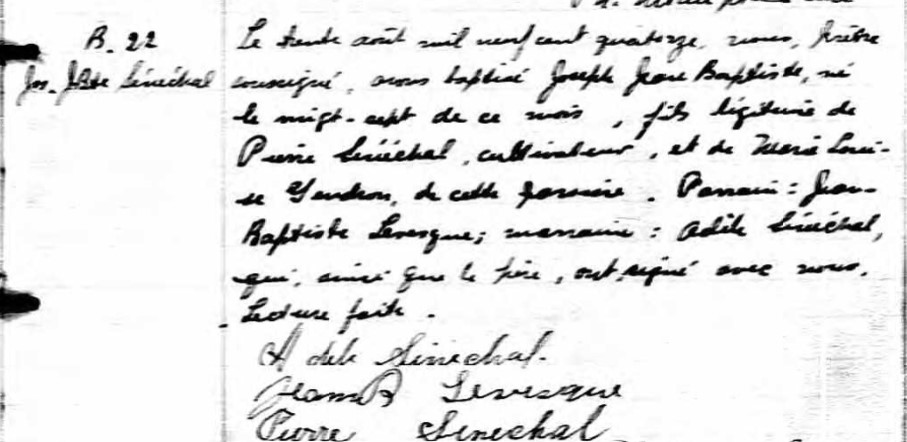 B. 22
Jos. JBte Sénéchal
Le trente août mil neuf cent quatorze, nous, prêtre
soussigné, avons baptisé Joseph Jean Baptiste, né
le vingt-sept de ce mois, fils légitime de
Pierre Sénéchal, cultivateur, et de Marie Loui-
se Gendron, de cette paroisse. Parrain : Jean-
Baptiste Levesque; marraine : Adèle Sénéchal,
qui, ainsi que le père, ont signé avec nous.
Lecture faite.
Adele Sénéchal.
Jean B Levesque
Pierre Sénéchal